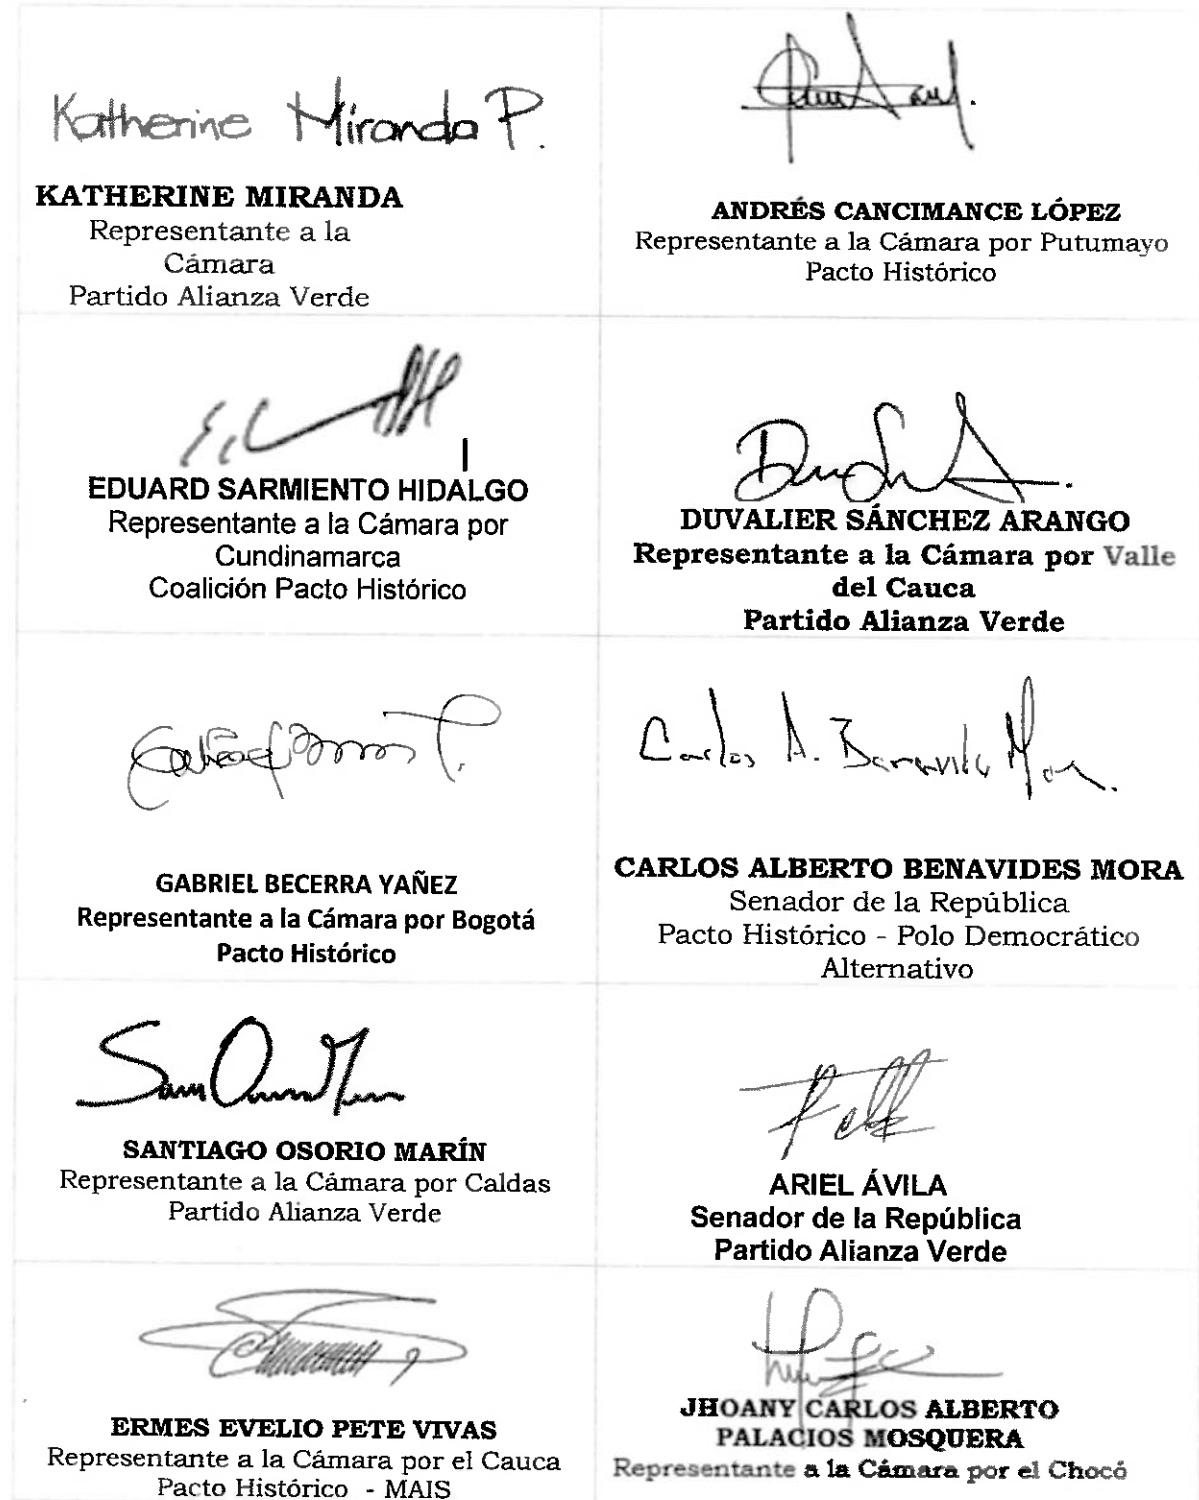 Katherine Miranda P.
KATHERINE MIRANDA
Representante a la
Cámara
Partido Alianza Verde
ANDRÉS CANCIMANCE LÓPEZ
Representante a la Cámara por Putumayo
Pacto Histórico
EDUARD SARMIENTO HIDALGO
Representante a la Cámara por
Cundinamarca
Coalición Pacto Histórico
DUVALIER SÁNCHEZ ARANGO
Representante a la Cámara por Valle
del Cauca
Partido Alianza Verde
GABRIEL BECERRA YAÑEZ
Representante a la Cámara por Bogotá
Pacto Histórico
Carlos A.
CARLOS ALBERTO BENAVIDES MORA
Senador de la República
Pacto Histórico - Polo Democrático
Alternativo
SANTIAGO OSORIO MARÍN
Representante a la Cámara por Caldas
Partido Alianza Verde
ARIEL ÁVILA
Senador de la República
Partido Alianza Verde
ERMES EVELIO PETE VIVAS
Representante a la Cámara por el Cauca
Pacto Histórico - MAIS
JHOANY CARLOS ALBERTO
PALACIOS MOSQUERA
Representante a la Cámara por el Chocó